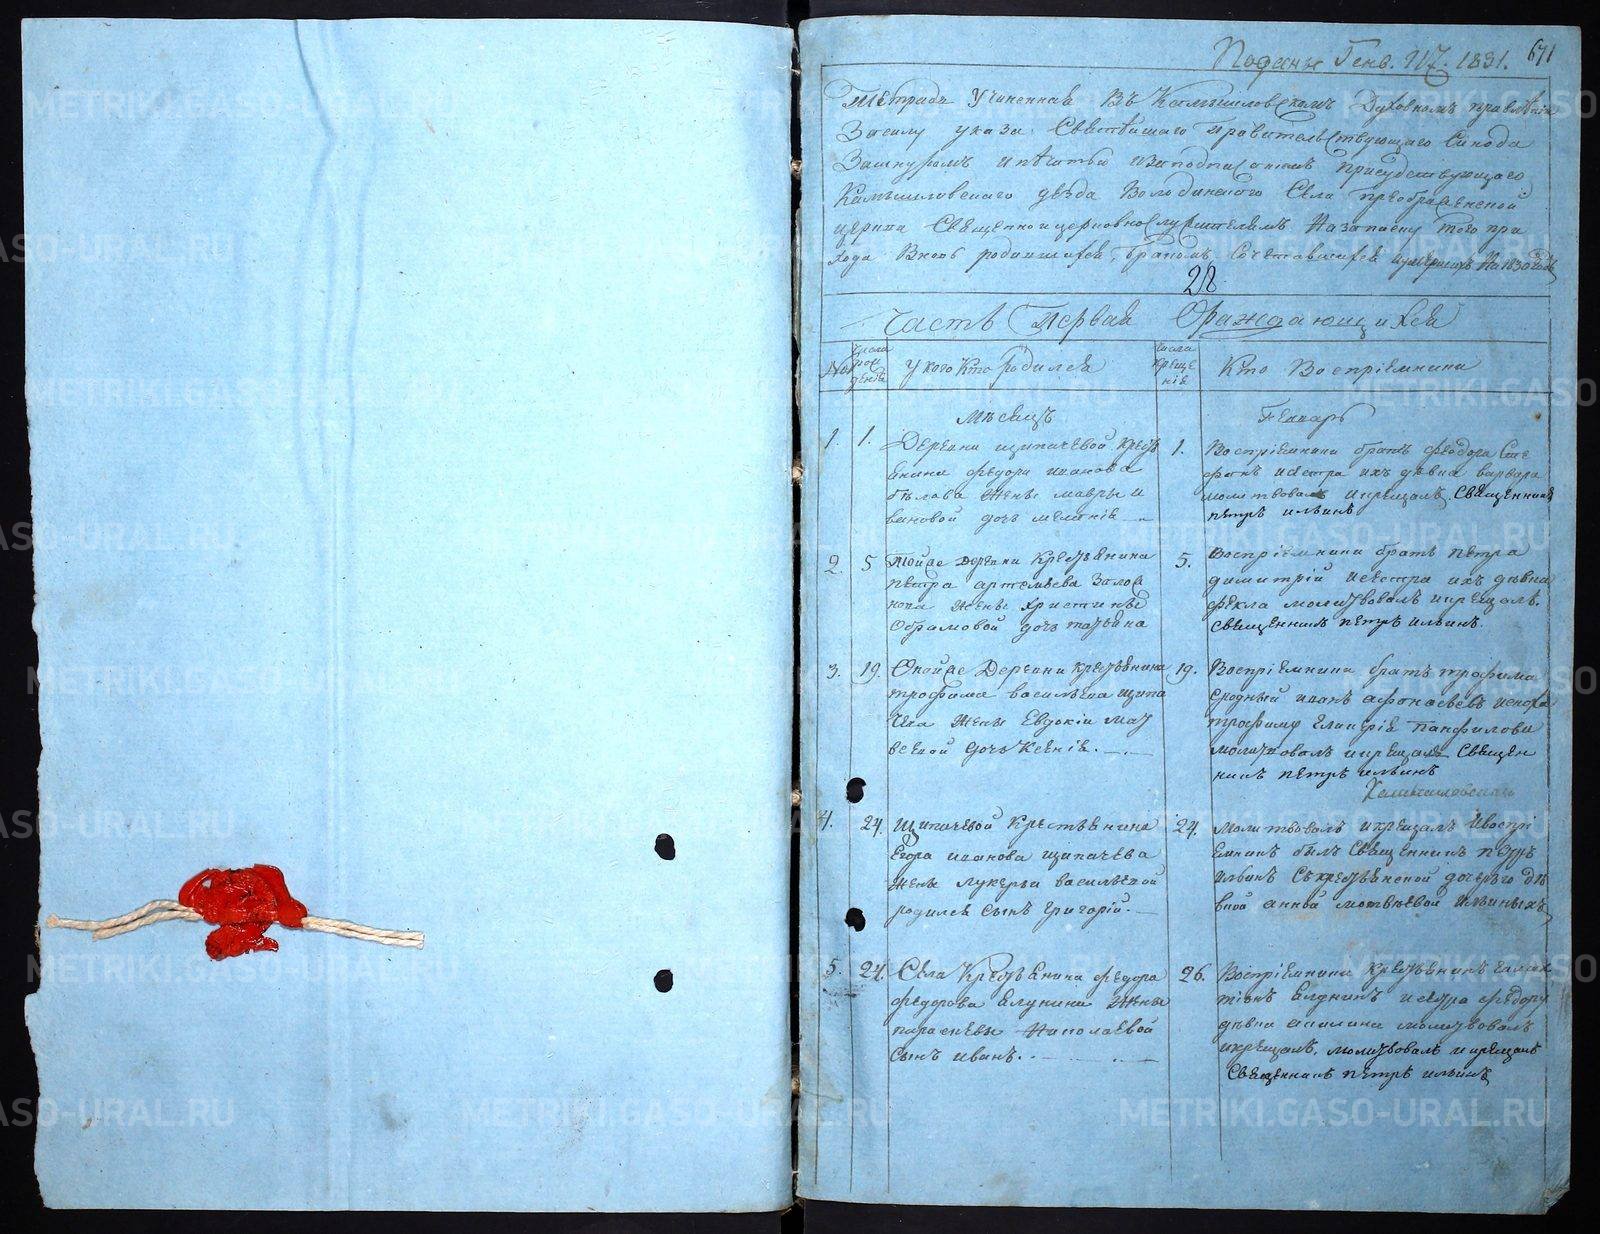 Поданы Генв. 1831. 671
Тетрадь Учиненная Въ Камышловскомъ Духовномъ правленіи
За силу указа Святѣйшаго Правительствующаго Синода
За шнуромъ и печатью и за подписаніемъ присудствующаго
Камышловскаго уѣзда Володинского Села преображенской
церкви Священноицерковнослужителямъ На записку того при
хода Вновь родившихся, бракомъ Сочетавшихся и умершихъ На 1830 годъ
28
Часть Первая О раждающихся
№ числа рож денія У кого Кто родился числа креще нія Кто Воспріемники
Мѣсяцъ Генварь
1. 1. Деревни щипачевой крест
янина федора иванова
бѣлова жены мавры и
вановой дочь меланія
1. Воспріемники братъ феодора Сте
фанъ исестра ихъ дѣвка варвара
молитвовалъ икрещалъ Священникъ
петръ ильинъ
2. 5 Тойже деревни Крестьянина
петра артемьева
жены христины
Абрамовой дочь татьяна
5. Воспріемники братъ петра
димитрій исестра ихъ дѣвка
фекла молитвовалъ икрещалъ
священникъ петръ ильинъ.
3. 19. Онойже Деревни крестьянина
трофима васильева щипа
чева жены Евдокіи мат
веевой дочь Ксенія.
19. Воспріемники братъ трофима
сродный иванъ афонасьевъ
трофиму панфилова
молитвовалъ икрещалъ Священ
никъ петръ ильинъ
4. 24. Щипачевой Крестьянина
Егора иванова щипачева
жены лукерьи васильевой
родился сынъ григорій.
24. Молитвовалъ икрещалъ Ивоспрі
емникъ былъ Священникъ петръ
ильинъ Съкрестьянской дочерью дѣ
вкой анной матвѣевой
5. 24. Села Крестьянина федора
федорова Елунина жены
парасковьи Николаевой
сынъ иванъ.
26. Воспріемники крестьянинъ галак
тіонъ Елунинъ исестра федору
дѣвка акилина молитвовалъ
икрещалъ, молитвовалъ и крещалъ
Священникъ петръ ильинъ
METRIKI.GASO-URAL.RU